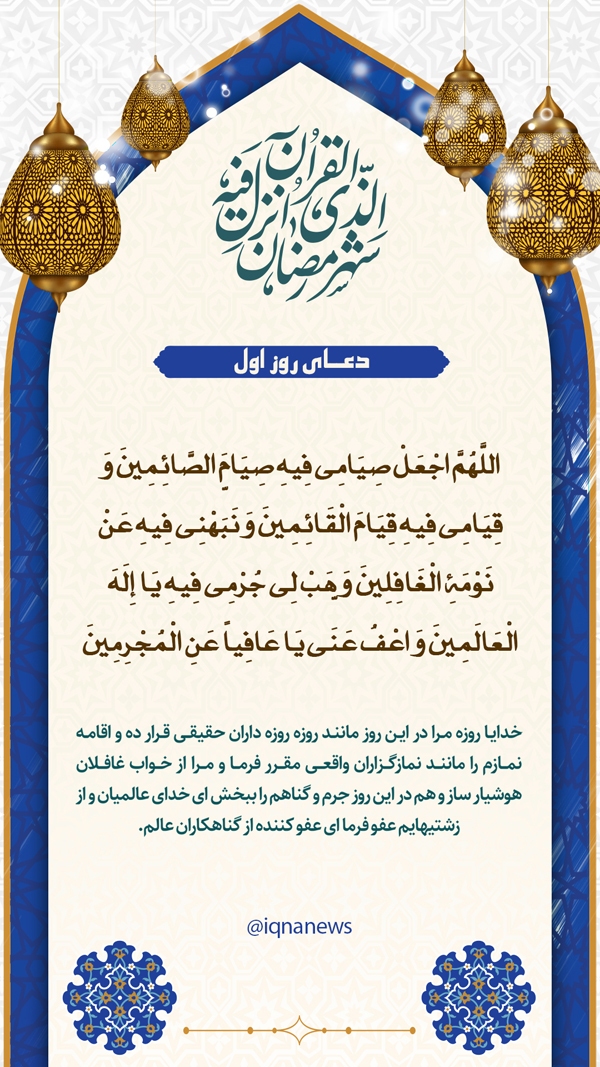 شهر رمضان الذی انزل فیه القرآن
دعـای روز اول
اللَّهُمَّ اجْعَلْ صِيَامِی فِيهِ صِيَامَ الصَّائِمِينَ وَ
قِيَامِی فِيهِ قِيَامَ الْقَائِمِينَ وَ نَبِّهْنِی فِيهِ عَنْ
نَوْمَةِ الْغَافِلِينَ وَ هَبْ لِی جُرْمِی فِيهِ يَا إِلَهَ
الْعَالَمِينَ وَ اعْفُ عَنِّی يَا عَافِياً عَنِ الْمُجْرِمِينَ
خدایا روزه مرا در این روز مانند روزه روزه داران حقیقی قرار ده و اقامه
نمازم را مانند نمازگزاران واقعی مقرر فرما و مرا از خواب غافلان
هوشیار ساز و هم در این روز جرم و گناهم را ببخش ای خدای عالمیان و از
زشتیهایم عفو فرما ای عفو کننده از گناهکاران عالم.
@iqnanews